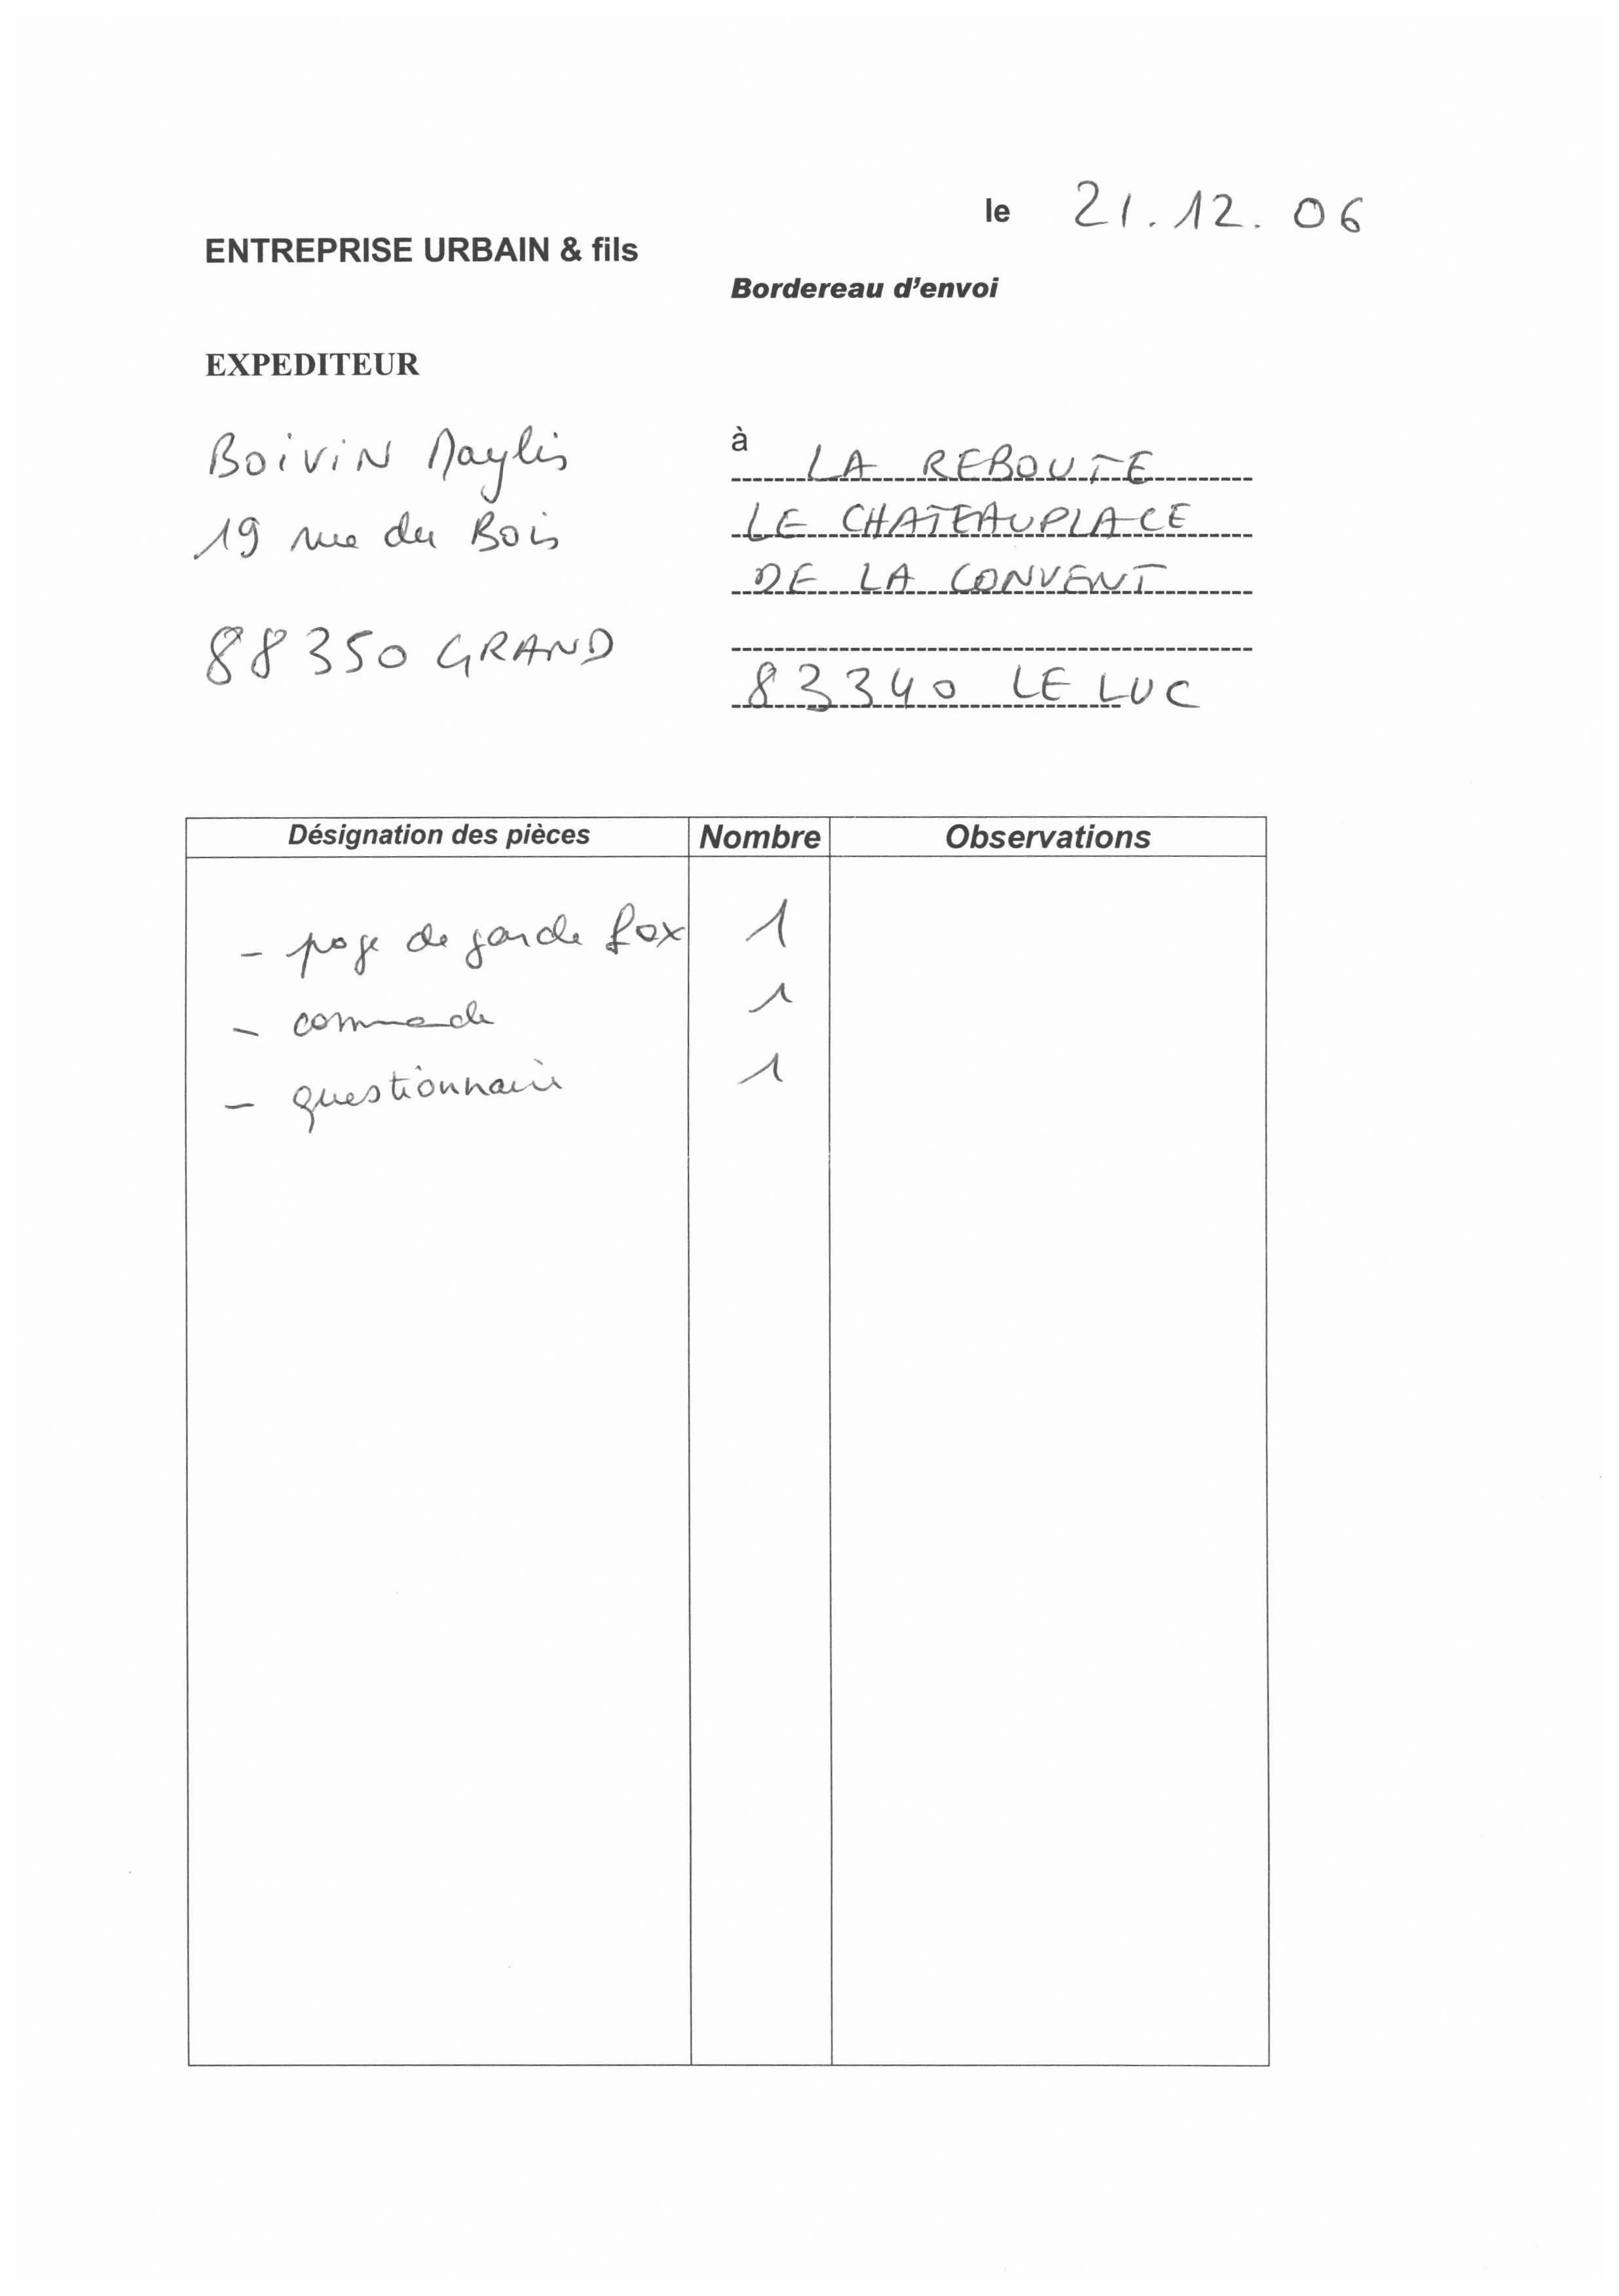 le 21.12.06
ENTREPRISE URBAIN & fils
Bordereau d'envoi
EXPEDITEUR
BoiviN Maylis
19 rue du Bois
88350 GRAND
à LA REBOUTE
LE CHATEAUPLACE
DE LA CONVENT
83340 LE LUC
Désignation des pièces Nombre Observations
- page de garde fax 1
- commande 1
- questionnaire 1